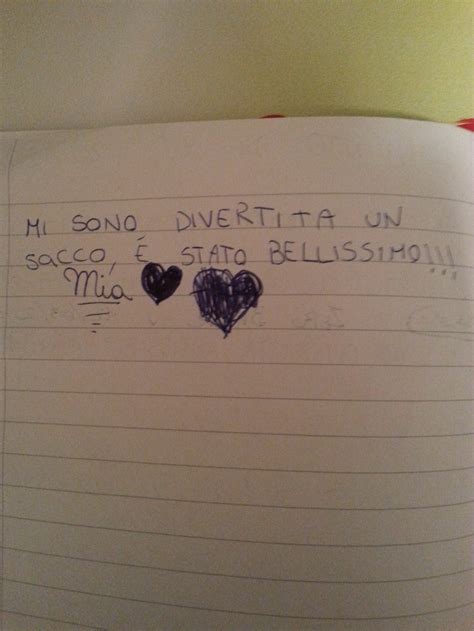 MI SONO DIVERTITA UN
SACCO, È STATO BELLISSIMO!!!
Mia